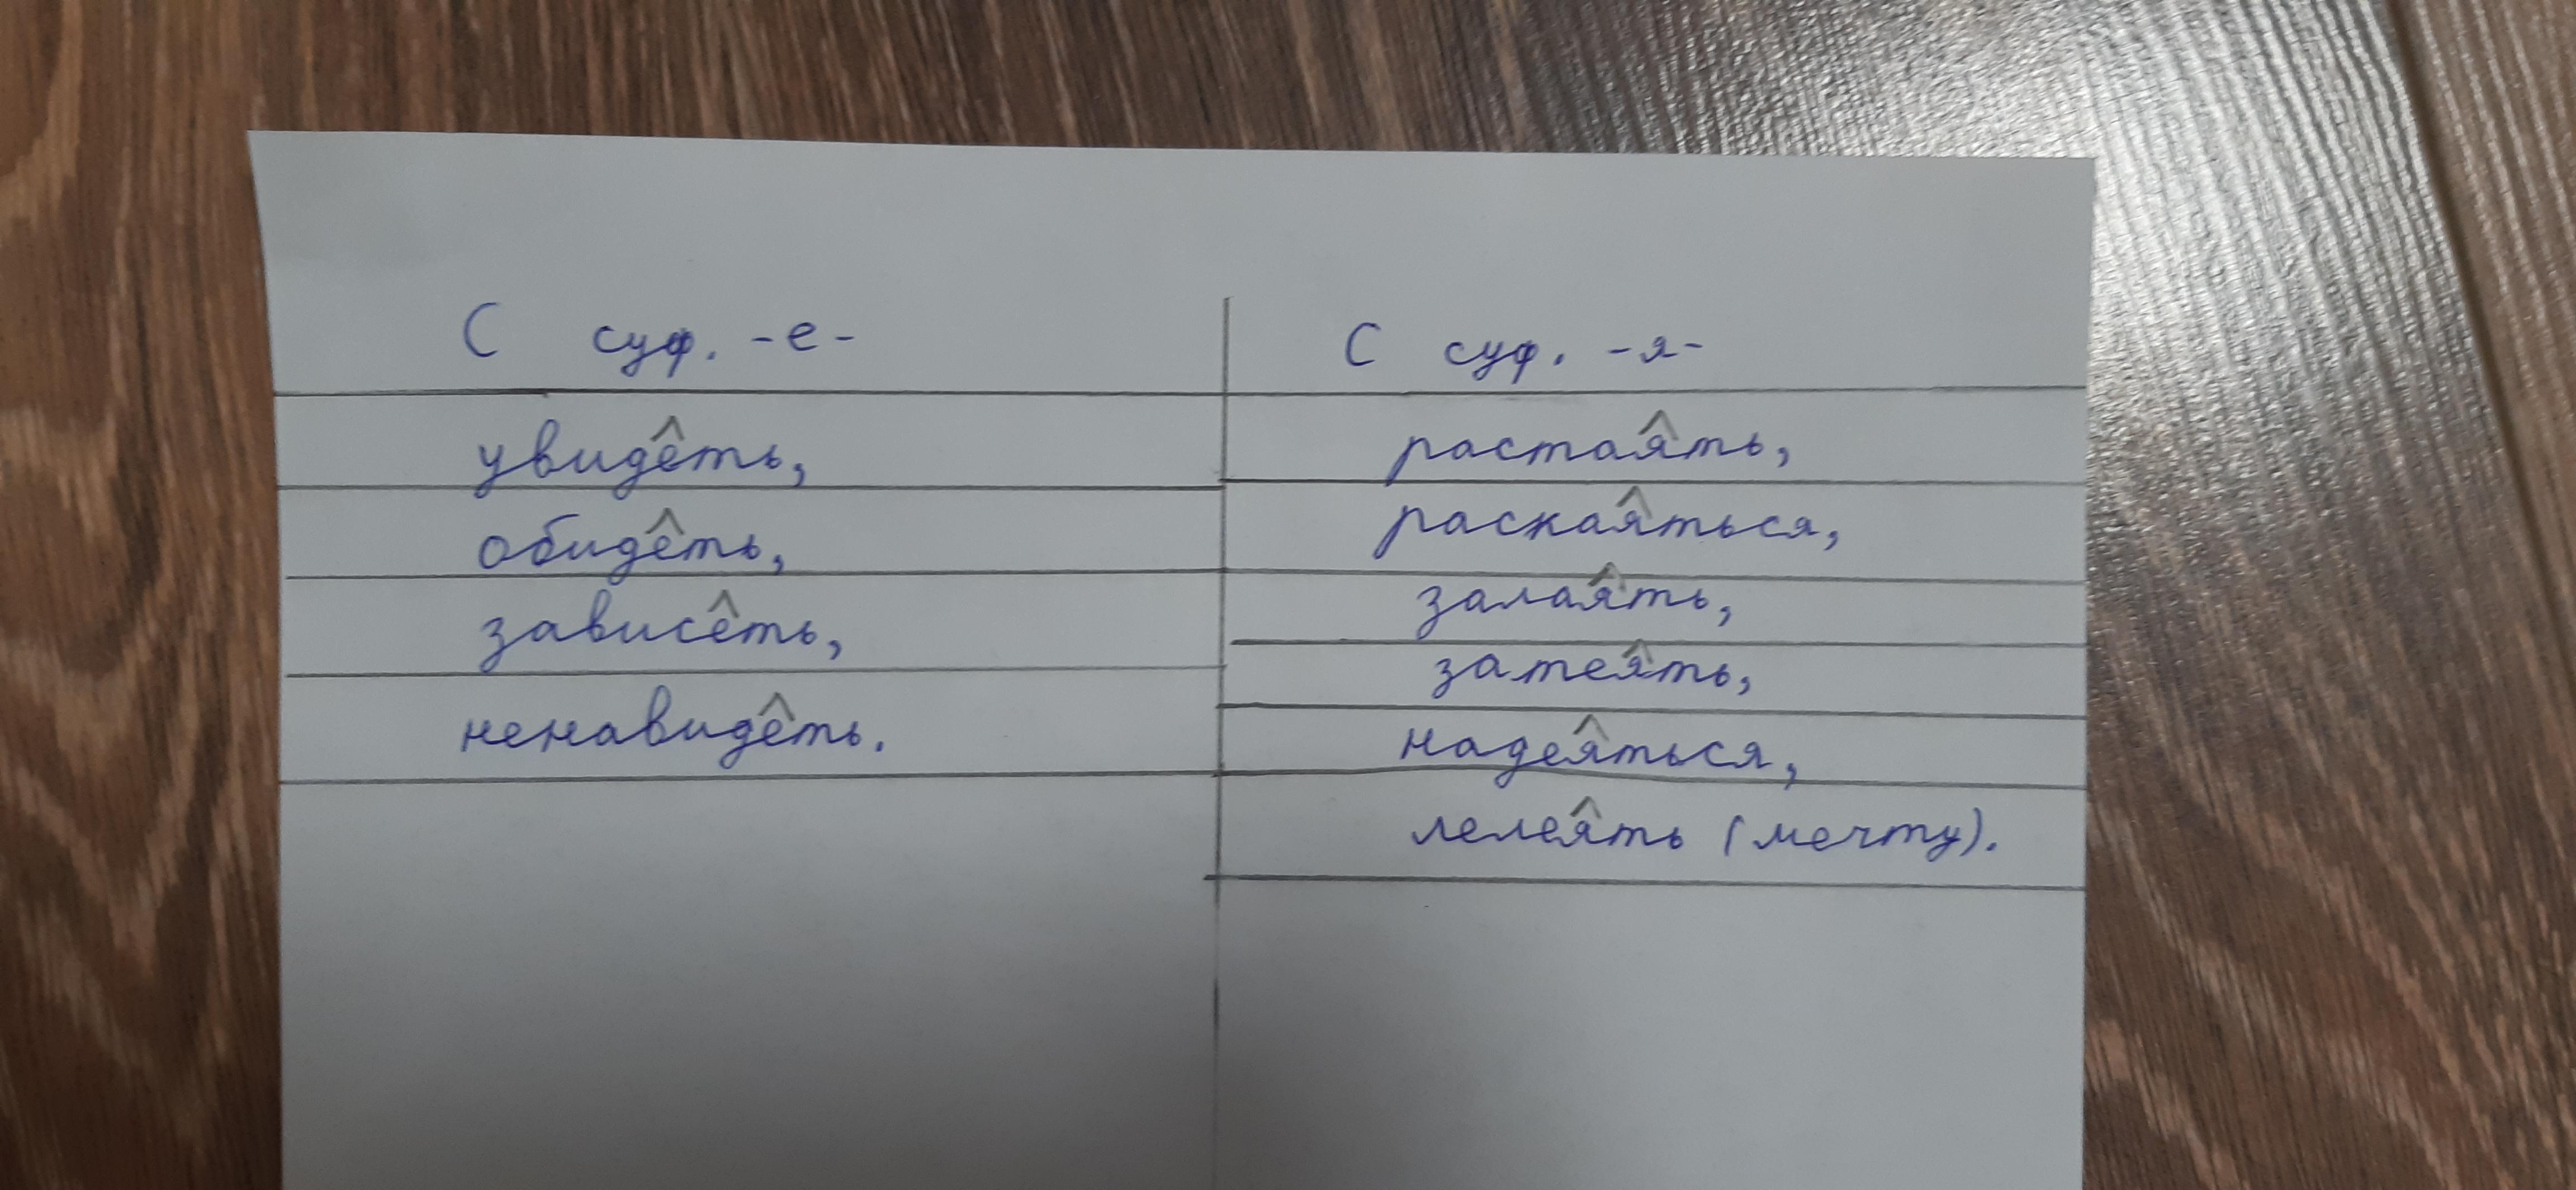 С суф. -е- С суф. -я-
увидеть, растаять,
обидеть, раскаяться,
зависеть, залаять,
ненавидеть. затеять,
надеяться,
лелеять (мечту).